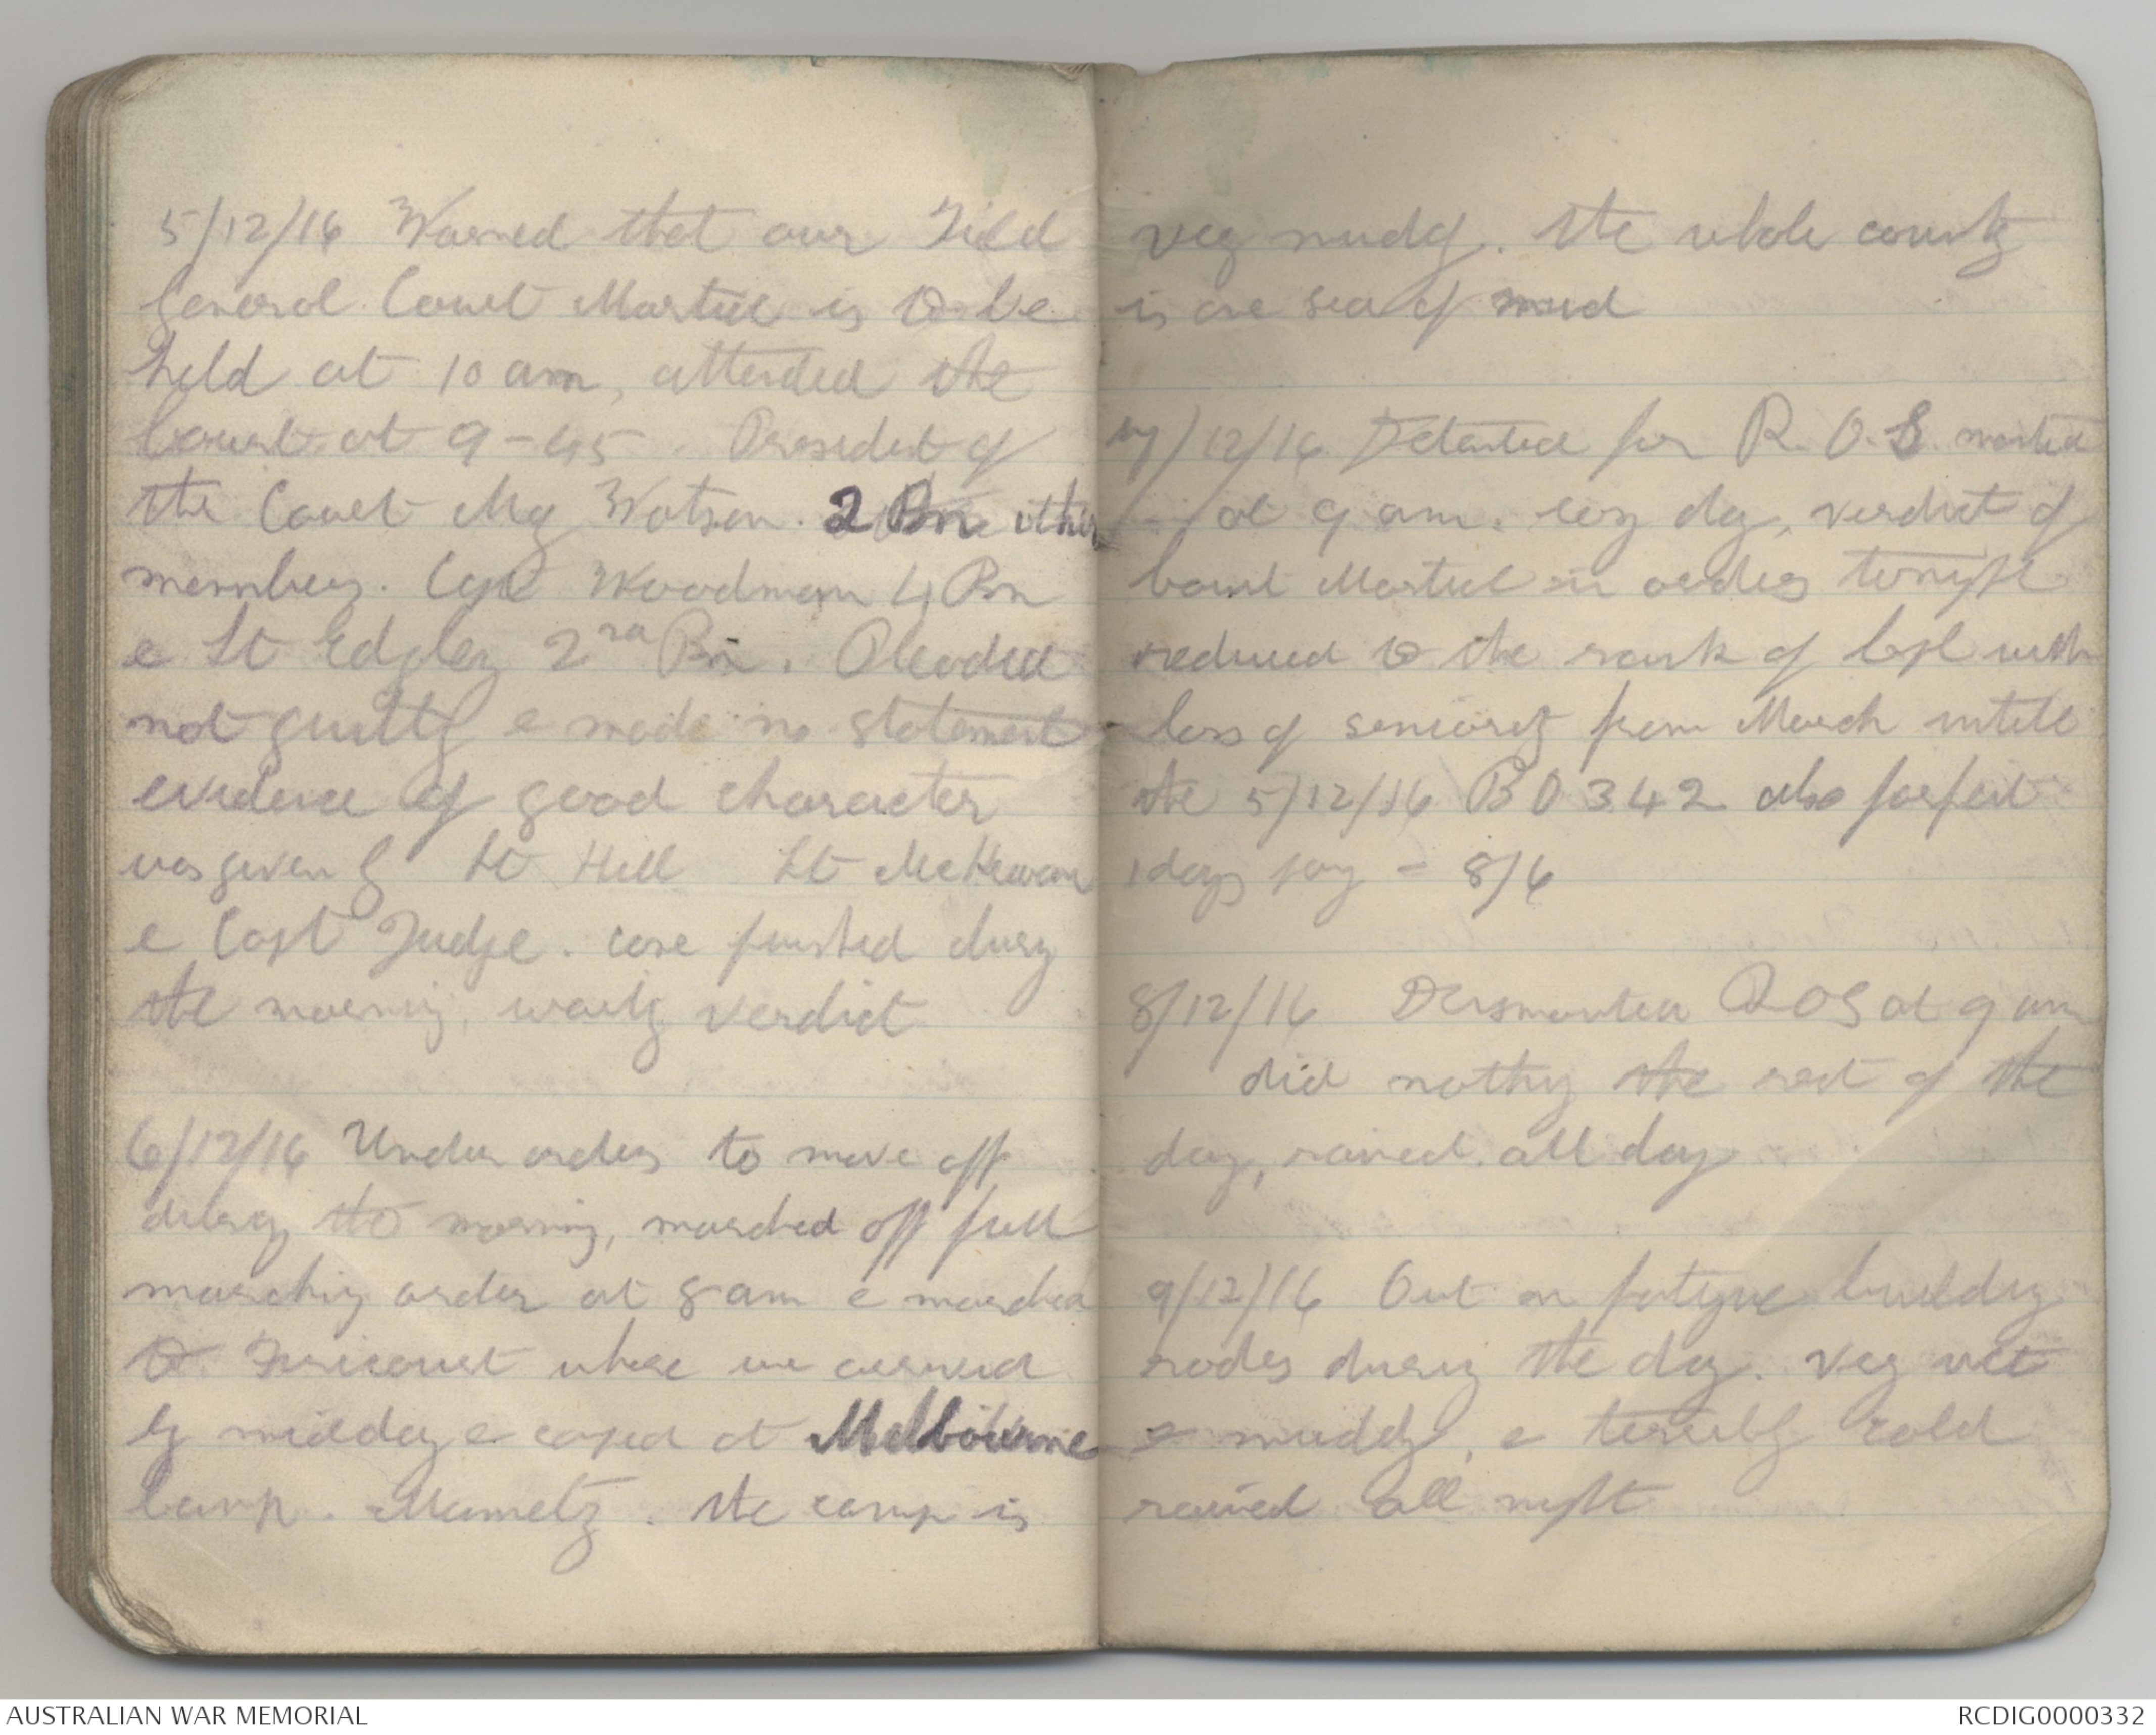 5/12/16 Warned that our Field
General Court Martial is to be
held at 10 am, attended the
Court at 9-45. President of
the Court Maj Watson. 2 Bn other
members. Capt Woodman 4 Bn
& Lt Edgley 2nd Bn. Pleaded
not guilty & made no statement
evidence of good character
was given by Lt Hill Lt McKewan
& Capt Judge. case finished during
the morning, waiting verdict
6/12/16 Under orders to move off
during the morning, marched off full
marching order at 8 am & marched
to Fricourt where we arrived
by midday & camped at Melbourne
Camp. Mametz. the camp is
very mudy. the whole country
is one sea of mud
7/12/16 Detailed for R.O.S. mounted
at 9 am. easy day, verdict of
Court Martial in orders tonight
reduced to the rank of Cpl with
loss of seniority from March untill
the 5/12/16 BO 342 also forfeit
1 days pay = 8/6
8/12/16 Dismounted ROS at 9 am
did nothing the rest of the
day, rained all day
9/12/16 Out on fatigue building
rodes during the day. Very wet
& muddy, & terribly cold
rained all night
AUSTRALIAN WAR MEMORIAL
RCDIG0000332